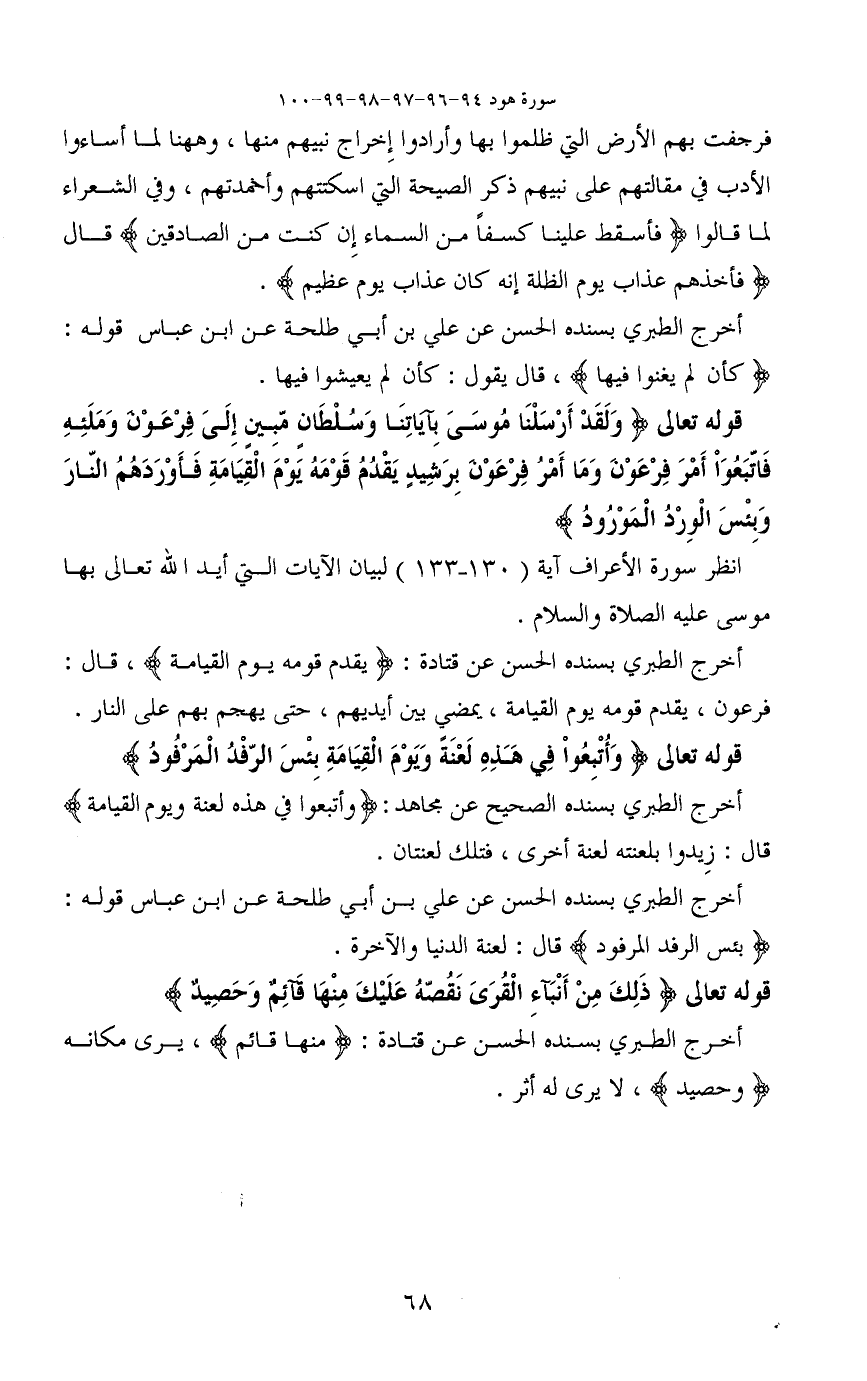 سورة هود ٩٤-٩٦-٩٧-٩٨-٩٩-١٠٠
فرجفت بهم الأرض التي ظلموا بها وأرادوا إخراج نبيهم منها ، وههنا لما أساءوا
الأدب في مقالتهم على نبيهم ذكر الصيحة التي اسكتتهم وأخمدتهم ، وفي الشعراء
لما قالوا ﴿ فأسقط علينا كسفاً من السماء إن كنت من الصادقين ﴾ قال
﴿ فأخذهم عذاب يوم الظلة إنه كان عذاب يوم عظيم ﴾ .
أخرج الطبري بسنده الحسن عن علي بن أبي طلحة عن ابن عباس قوله :
﴿ كأن لم يغنوا فيها ﴾ ، قال يقول : كأن لم يعيشوا فيها .
قوله تعالى ﴿ وَلَقَدْ أَرْسَلْنَا مُوسَىَ بِآيَاتِنَا وَسُلْطَانٍ مّبِينٍ إِلَىَ فِرْعَوْنَ وَمَلَئِهِ
فَاتّبَعُوَاْ أَمْرَ فِرْعَوْنَ وَمَا أَمْرُ فِرْعَوْنَ بِرَشِيدٍ يَقْدُمُ قَوْمَهُ يَوْمَ الْقِيَامَةِ فَأَوْرَدَهُمُ النّارَ
وَبِئْسَ الْوِرْدُ الْمَوْرُودُ ﴾
انظر سورة الأعراف آية ( ١٣٠-١٣٣ ) لبيان الآيات التي أيد الله تعالى بها
موسى عليه الصلاة والسلام .
أخرج الطبري بسنده الحسن عن قتادة : ﴿ يقدم قومه يوم القيامة ﴾ ، قال :
فرعون ، يقدم قومه يوم القيامة ، يمضي بين أيديهم ، حتى يهجم بهم على النار .
قوله تعالى ﴿ وَأُتْبِعُواْ فِي هَذِهِ لَعْنَةً وَيَوْمَ الْقِيَامَةِ بِئْسَ الرّفْدُ الْمَرْفُودُ ﴾
أخرج الطبري بسنده الصحيح عن مجاهد : ﴿ وأتبعوا في هذه لعنة ويوم القيامة ﴾
قال : زيدوا بلعنته لعنة أخرى ، فتلك لعنتان .
أخرج الطبري بسنده الحسن عن علي بن أبي طلحة عن ابن عباس قوله :
﴿ بئس الرفد المرفود ﴾ قال : لعنة الدنيا والآخرة .
قوله تعالى ﴿ ذَلِكَ مِنْ أَنْبَآءِ الْقُرَىَ نَقُصّهُ عَلَيْكَ مِنْهَا قَآئِمٌ وَحَصِيدٌ ﴾
أخرج الطبري بسنده الحسن عن قتادة : ﴿ منها قائم ﴾ ، يرى مكانه
﴿ وحصيد ﴾ ، لا يرى له أثر .
٦٨